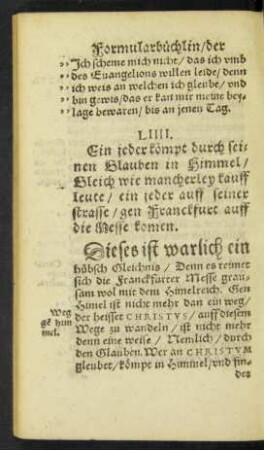 Formularbüchlin/der
„Ich scheme mich nicht/das ich vmb
„des Euangelions willen leide/denn
„ich weis an welchen ich gleube/vnd
„bin gewis/das er kan mir meine bey-
„lage bewaren/bis an jenen Tag.
LIIII.
Ein jeder kömpt durch sei-
nen Glauben in Himmel/
Gleich wie mancherley kauff
leute/ein jeder auff seiner
strasse/gen Franckfurt auff
die Messe komen.
Dieses ist warlich ein
hübsch Gleichnis/Denn es reimet
sich die Franckfurter Messe grau-
sam wol mit dem Himelreich. Gen
Himel ist nicht mehr dan ein weg/
Weg
gē him
mel.
der heisset CHRISTVS/auff diesem
Wege zu wandeln/ist nicht mehr
denn eine weise/Nemlich/durch
den Glauben. Wer an CHRISTVM
gleubet/kömpt in Himmel/vnd fin-
det